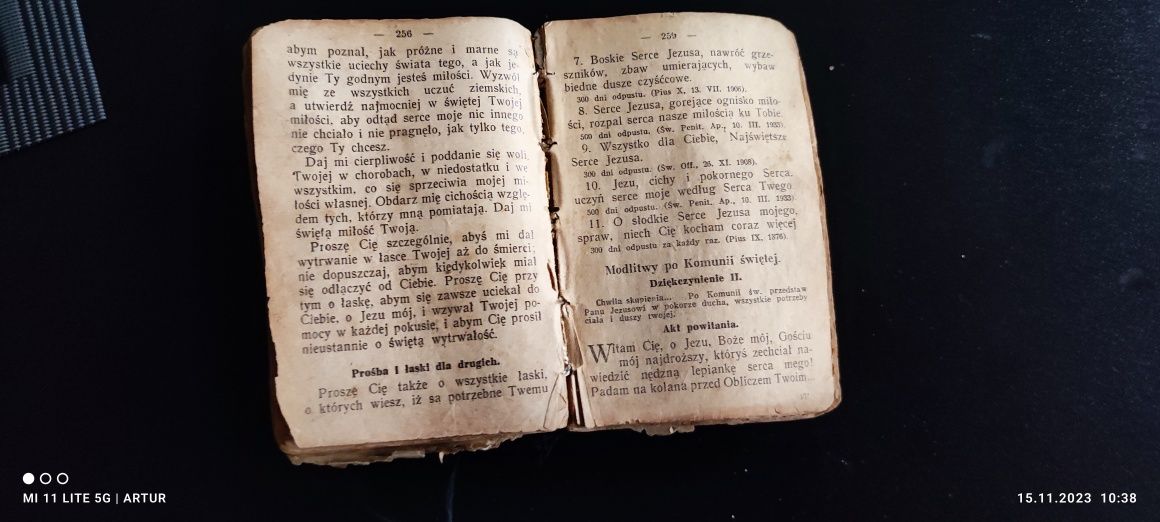 — 256 —
abym poznał, jak próżne i marne są
wszystkie uciechy świata tego, a jak je-
dynie Ty godnym jesteś miłości. Wyzwól
mię ze wszystkich uczuć ziemskich,
a utwierdź najmocniej w świętej Twojej
miłości, aby odtąd serce moje nic innego
nie chciało i nie pragnęło, jak tylko tego,
czego Ty chcesz.
Daj mi cierpliwość i poddanie się woli
Twojej w chorobach, w niedostatku i we
wszystkim, co się sprzeciwia mojej mi-
łości własnej. Obdarz mię cichością wzglę-
dem tych, którzy mną pomiatają. Daj mi
świętą miłość Twoją.
Proszę Cię szczególnie, abyś mi dał
wytrwanie w łasce Twojej aż do śmierci;
nie dopuszczaj, abym kiedykolwiek miał
się odłączyć od Ciebie. Proszę Cię przy
tym o łaskę, abym się zawsze uciekał do
Ciebie, o Jezu mój, i wzywał Twojej po-
mocy w każdej pokusie, i abym Cię prosił
nieustannie o świętą wytrwałość.
Prośba i łaski dla drugich.
Proszę Cię także o wszystkie łaski,
o których wiesz, iż są potrzebne Twemu
— 259 —
7. Boskie Serce Jezusa, nawróć grze-
szników, zbaw umierających, wybaw
biedne dusze czyśćcowe.
300 dni odpustu. (Pius X, 13. VII. 1906).
8. Serce Jezusa, gorejące ognisko miło-
ści, rozpal serca nasze miłością ku Tobie.
500 dni odpustu. (Św. Penit. Ap., 10. III. 1933).
9. Wszystko dla Ciebie, Najświętsze
Serce Jezusa.
300 dni odpustu. (Św. Off., 26. XI. 1908).
10. Jezu, cichy i pokornego Serca,
uczyń serce moje według Serca Twego
500 dni odpustu. (Św. Penit. Ap., 10. III. 1933)
11. O słodkie Serce Jezusa mojego,
spraw, niech Cię kocham coraz więcej
300 dni odpustu za każdy raz. (Pius IX, 1876).
Modlitwy po Komunii świętej.
Dziękczynienie II.
Chwila skupienia... Po Komunii św. przedstaw
Panu Jezusowi w pokorze ducha, wszystkie potrzeby
ciała i duszy twojej.
Akt powitania.
Witam Cię, o Jezu, Boże mój, Gościu
mój najdroższy, któryś zechciał na-
wiedzić nędzną lepiankę serca mego!
Padam na kolana przed Obliczem Twoim...
MI 11 LITE 5G | ARTUR
15.11.2023 10:38